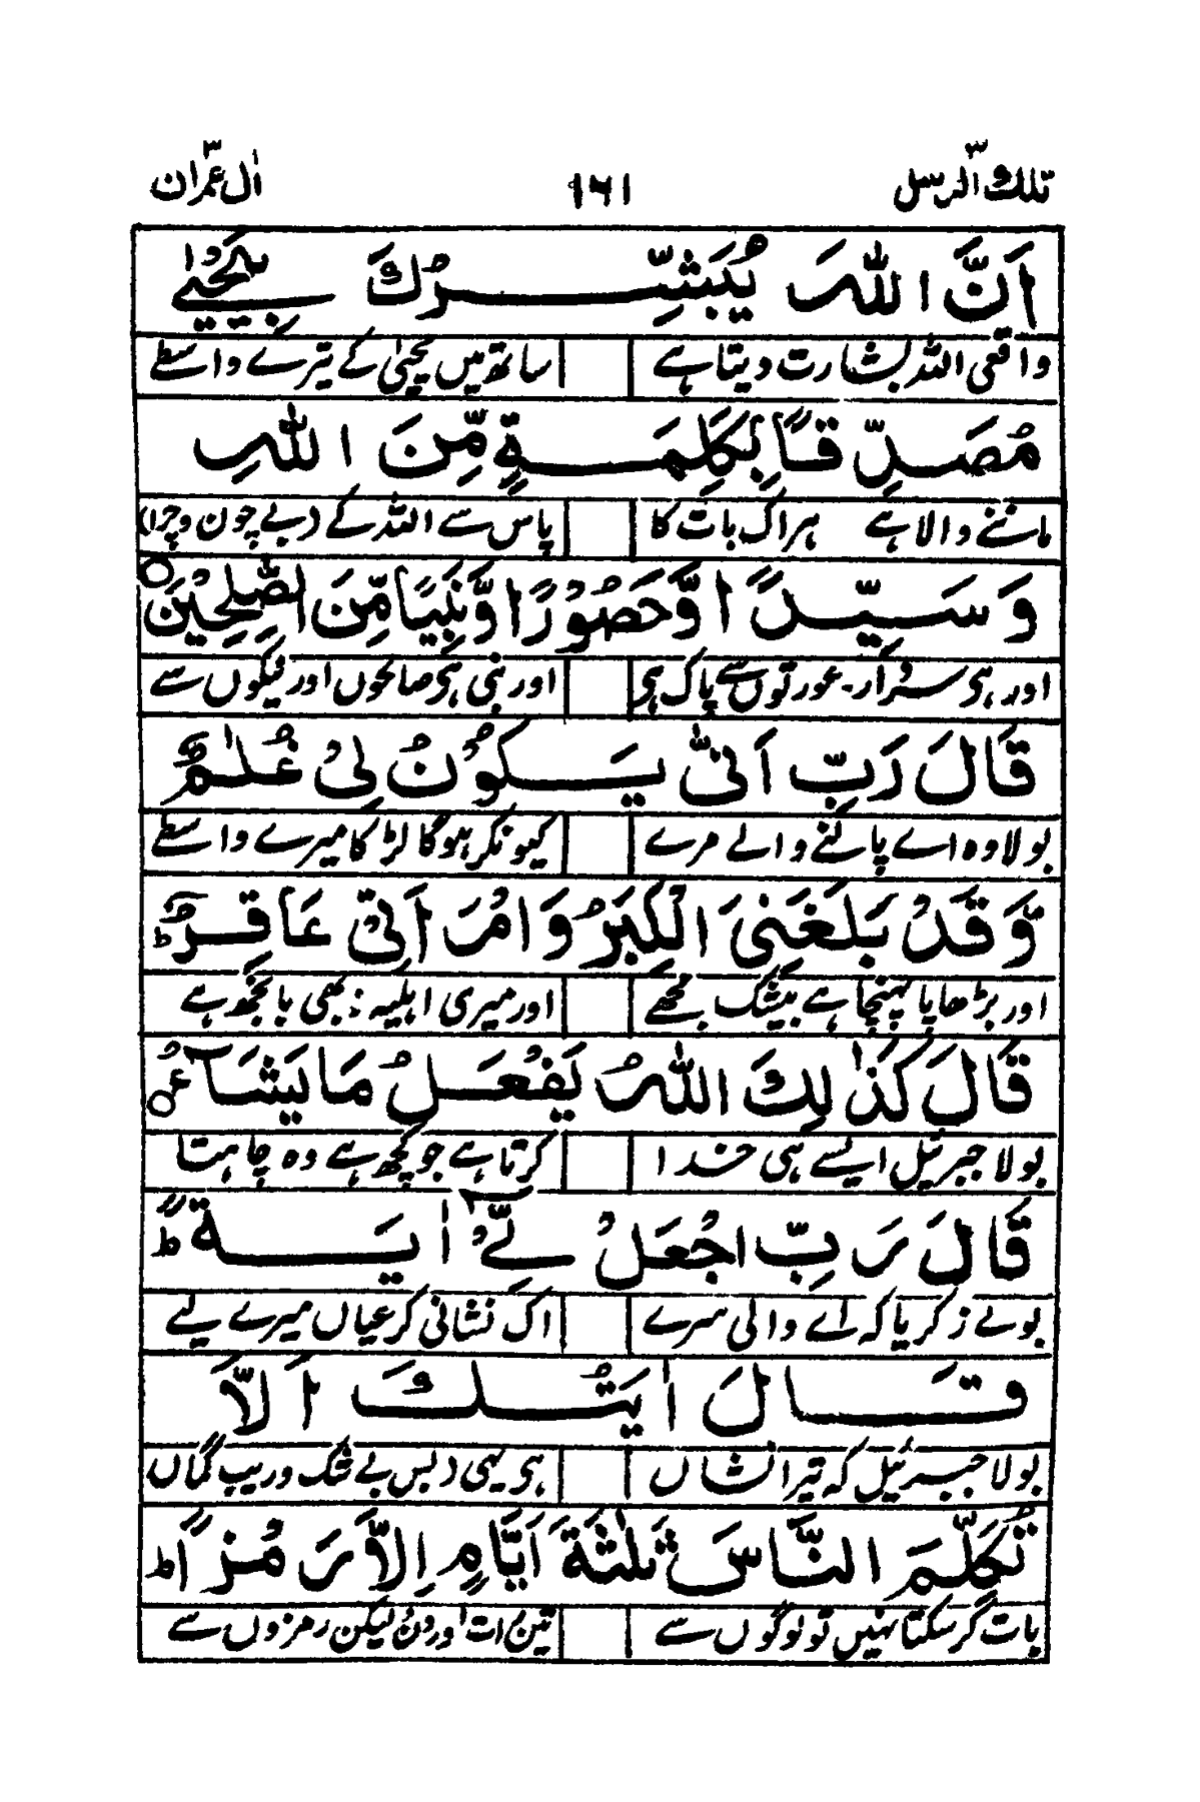 تلك الرسل ٣ ١٦١ اٰل عمرٰن ٣
اَنَّ اللّٰهَ يُبَشِّرُكَ بِيَحْيٰى
واقعی اللہ بشارت دیتا ہے ساتھ میں یحییٰ کے تیرے واسطے
مُصَدِّقًا بِكَلِمَةٍ مِّنَ اللّٰهِ
ماننے والا ہے ہر اک بات کا پاس سے اللہ کے (بے چون وچرا)
وَسَيِّدًا وَّحَصُوْرًا وَّنَبِيًّا مِّنَ الصّٰلِحِيْنَ ○
اور ہی سردار۔ عورتوں سے پاک ہی اور نبی ہی صالحوں اور نیکوں سے
قَالَ رَبِّ اَنّٰى يَكُوْنُ لِىْ غُلٰمٌ
بولا وہ اے پالنے والے مرے کیونکر ہوگا لڑکا میرے واسطے
وَّقَدْ بَلَغَنِىَ الْكِبَرُ وَامْرَاَتِىْ عَاقِرٌ ؕ
اور بڑھاپا پہنچا ہے بیشک مجھے اور میری اہلیہ: بھی بانجھ ہے
قَالَ كَذٰلِكَ اللّٰهُ يَفْعَلُ مَا يَشَآءُ ○
بولا جبرئیل ایسے ہی خدا کرتا ہے جو کچھ ہے وہ چاہتا
قَالَ رَبِّ اجْعَلْ لِّىْٓ اٰيَةً ؕ
بولے زکریا کہ اے والی مرے اک نشانی کر عیاں میرے لیے
قَالَ اٰيَتُكَ اَلَّا
بولا جبرئیل کہ تیرا نشاں ہی یہی بس بے شک وریب گماں
تُكَلِّمَ النَّاسَ ثَلٰثَةَ اَيَّامٍ اِلَّا رَمْزًا ؕ
بات کر سکتا نہیں تو لوگوں سے تین رات اور دن لیکن رمزوں سے